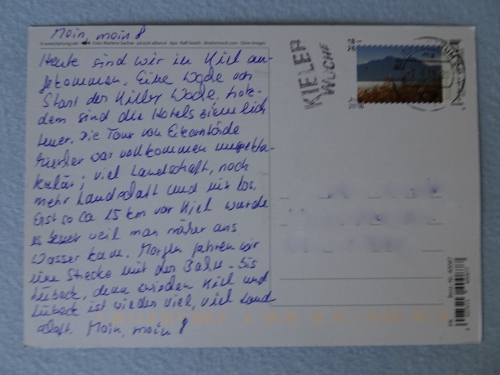 Moin, moin!
Heute sind wir in Kiel an-
gekommen. Eine Woche vor
Start der Kieler Woche, trotz-
dem sind die Hotels ziemlich
teuer. Die Tour von Eckernförde
hierher war vollkommen unspekta-
kulär; viel Landschaft, noch
mehr Landschaft und nix los.
Erst so ca 15 km vor Kiel wurde
es besser weil man näher ans
Wasser kam. Morgen fahren wir
eine Strecke mit der Bahn - bis
Lübeck, denn zwischen Kiel und
Lübeck ist wieder viel, viel Land
schaft. Moin, moin!
KIELER
WOCHE